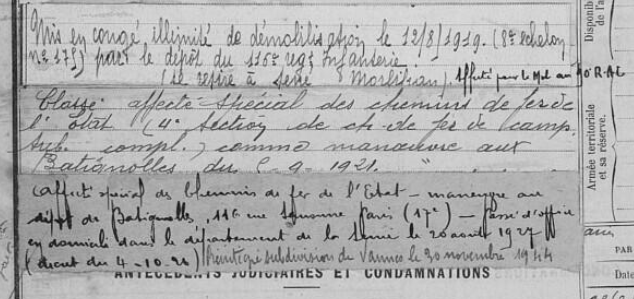 Mis en congé illimité de démobilisation le 12/8/1919. (8e echelon
n° 175) par le dépôt du 116e regt Infanterie.
(se retire à Morbihan). Affecté pour le Mob au R.A.L
Classé affecté spécial des chemins de fer de
l'Etat (4e section de ch. de fer de camp.
sub. compl.) comme manœuvre aux
Batignolles du 9-1921.
affecté spécial des Chemins de fer de l'Etat - manœuvre au
dépôt de Batignolles, 116 rue Paris (17e) - Passé d'office
en domicile dans le département de la Seine le 20 août 1927
(décret du 4-10-) Réintégré subdivision de Vannes le 30 novembre 1944
ANTÉCÉDENTS JUDICIAIRES ET CONDAMNATIONS
Disponibilité
de l'a
Armée territoriale
et sa réserve.
PAR
Date